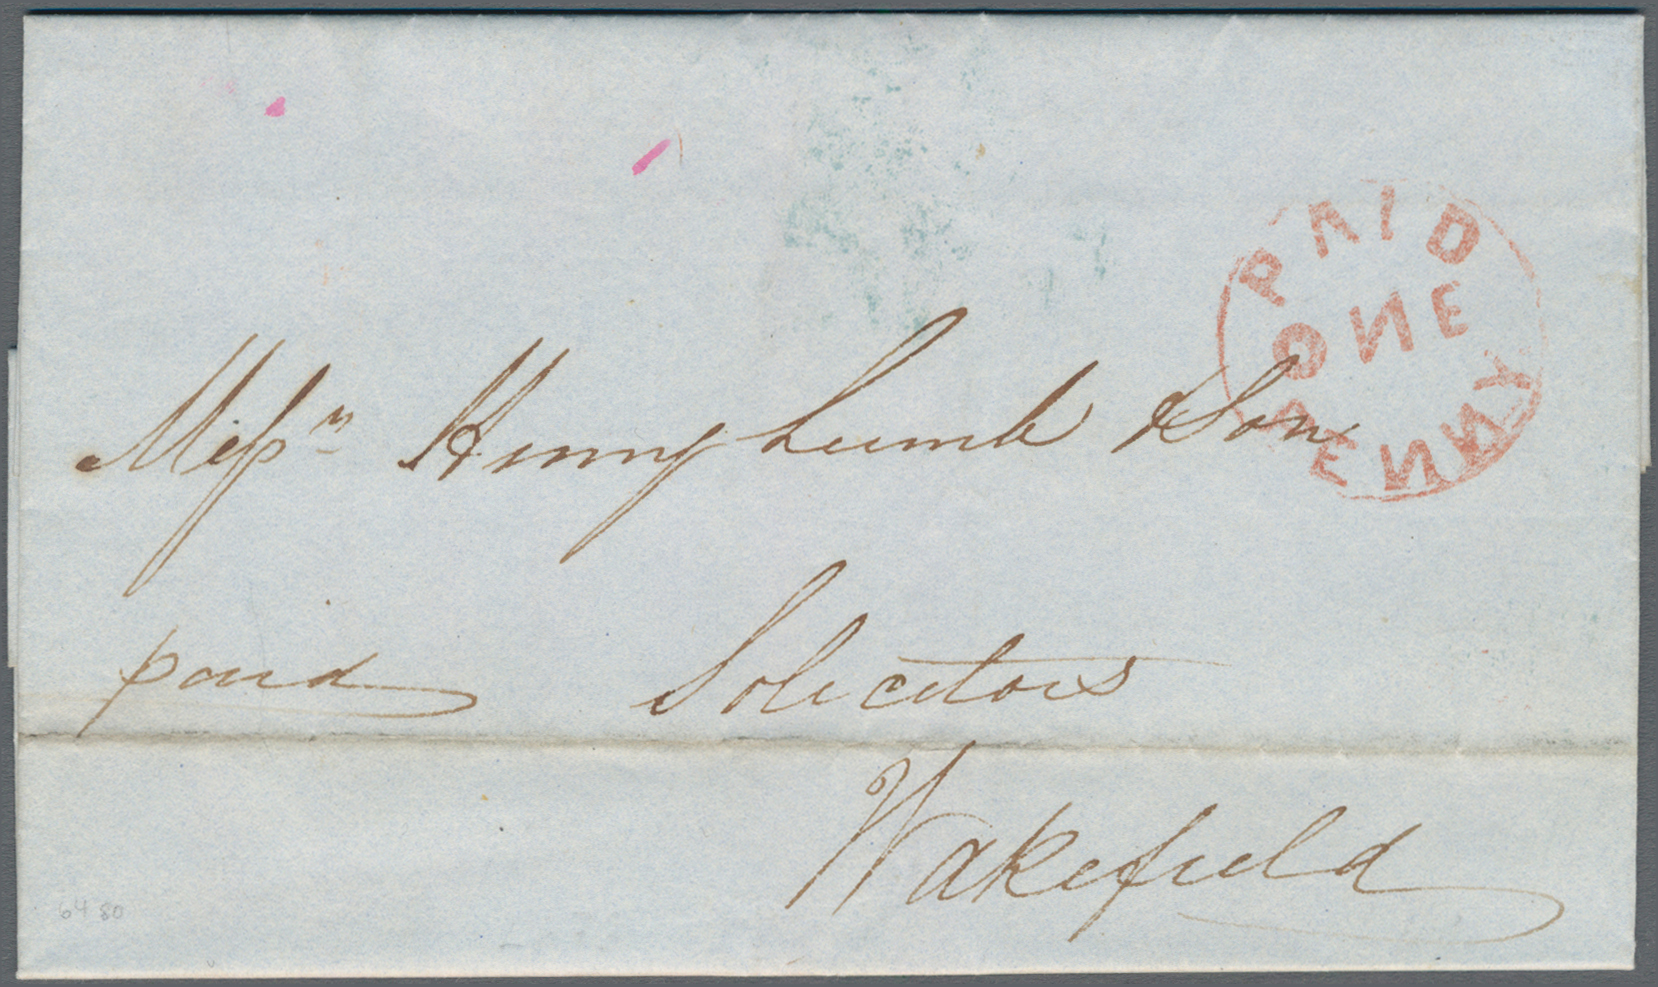 PAID
ONE
PENNY
Messrs & Son
paid Solicitors
Wakefield
64 80